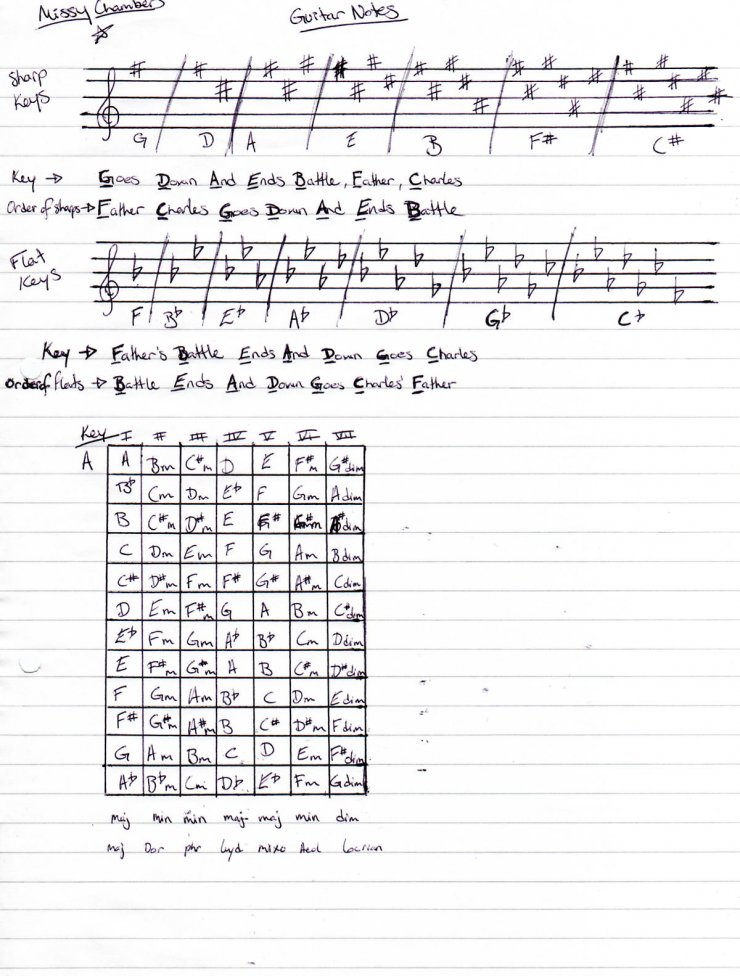 Missy Chambers
Guitar Notes
Sharp Keys
G D A E B F# C#
Key → Goes Down And Ends Battle, Father, Charles
Order of sharps → Father Charles Goes Down And Ends Battle
Flat Keys
F B♭ E♭ A♭ D♭ G♭ C♭
Key → Father's Battle Ends And Down Goes Charles
Order of flats → Battle Ends And Down Goes Charles' Father
Key I II III IV V VI VII
A A Bm C#m D E F#m G#dim
B♭ Cm Dm E♭ F Gm Adim
B C#m D#m E F# G#m A#dim
C Dm Em F G Am Bdim
C# D#m Fm F# G# A#m Cdim
D Em F#m G A Bm C#dim
E♭ Fm Gm A♭ B♭ Cm Ddim
E F#m G#m A B C#m D#dim
F Gm Am B♭ C Dm Edim
F# G#m A#m B C# D#m Fdim
G Am Bm C D Em F#dim
A♭ B♭m Cm D♭ E♭ Fm Gdim
maj min min maj- maj min dim
maj Dor phr Lyd mixo Aeol Locrian